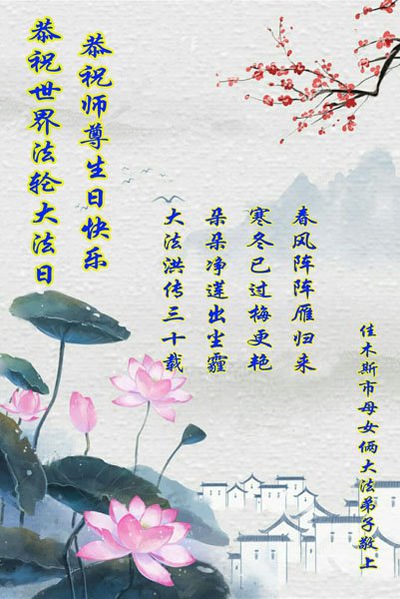 恭祝世界法轮大法日
恭祝师尊生日快乐
春风阵阵雁归来
寒冬已过梅更艳
朵朵净莲出尘霾
大法洪传三十载
佳木斯市母女俩大法弟子敬上